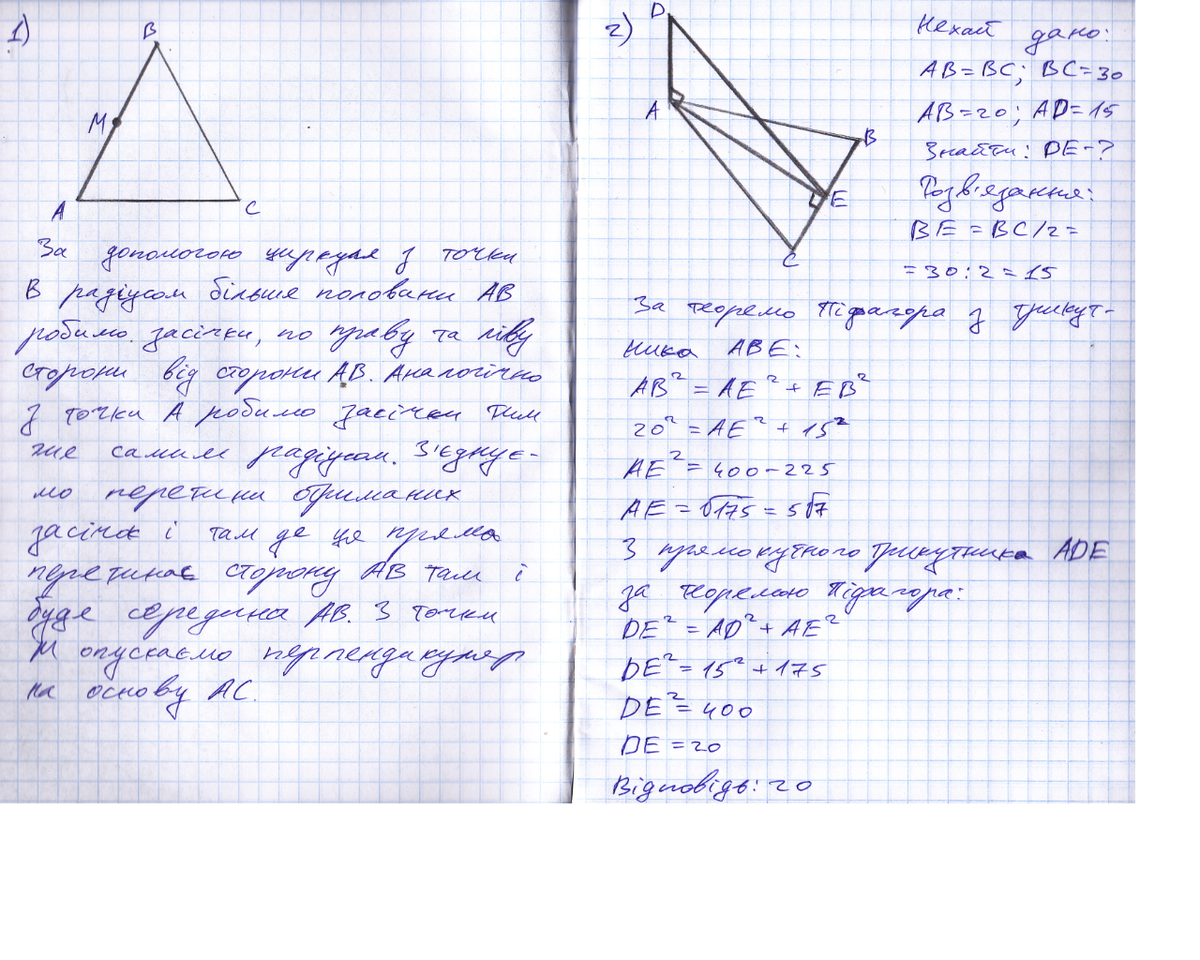 1)
B
M
A
C
За допомогою циркуля з точки
В радіусом більше половани АВ
робимо засічки, по праву та ліву
сторони від сторони АВ. Аналогічно
з точки А робимо засічки тим
же самим радіусом. З'єднує-
мо перетини отриманих
засічок і там де ця пряма
перетинає сторону АВ там і
буде середина АВ. З точки
М опускаємо перпендикуляр
на основу АС.
2)
D
A
B
E
C
Нехай дано:
AB=BC; BC=30
AB=20; AD=15
Знайти: DE-?
Розв'язання:
BE = BC/2=
=30:2=15
За теоремо Піфагора з трикут-
ника ABE:
AB²=AE²+EB²
20²=AE²+15²
AE²=400-225
AE=√175=5√7
З прямокутного трикутника ADE
за теоремою Піфагора:
DE²=AD²+AE²
DE²=15²+175
DE²=400
DE=20
Відповідь: 20